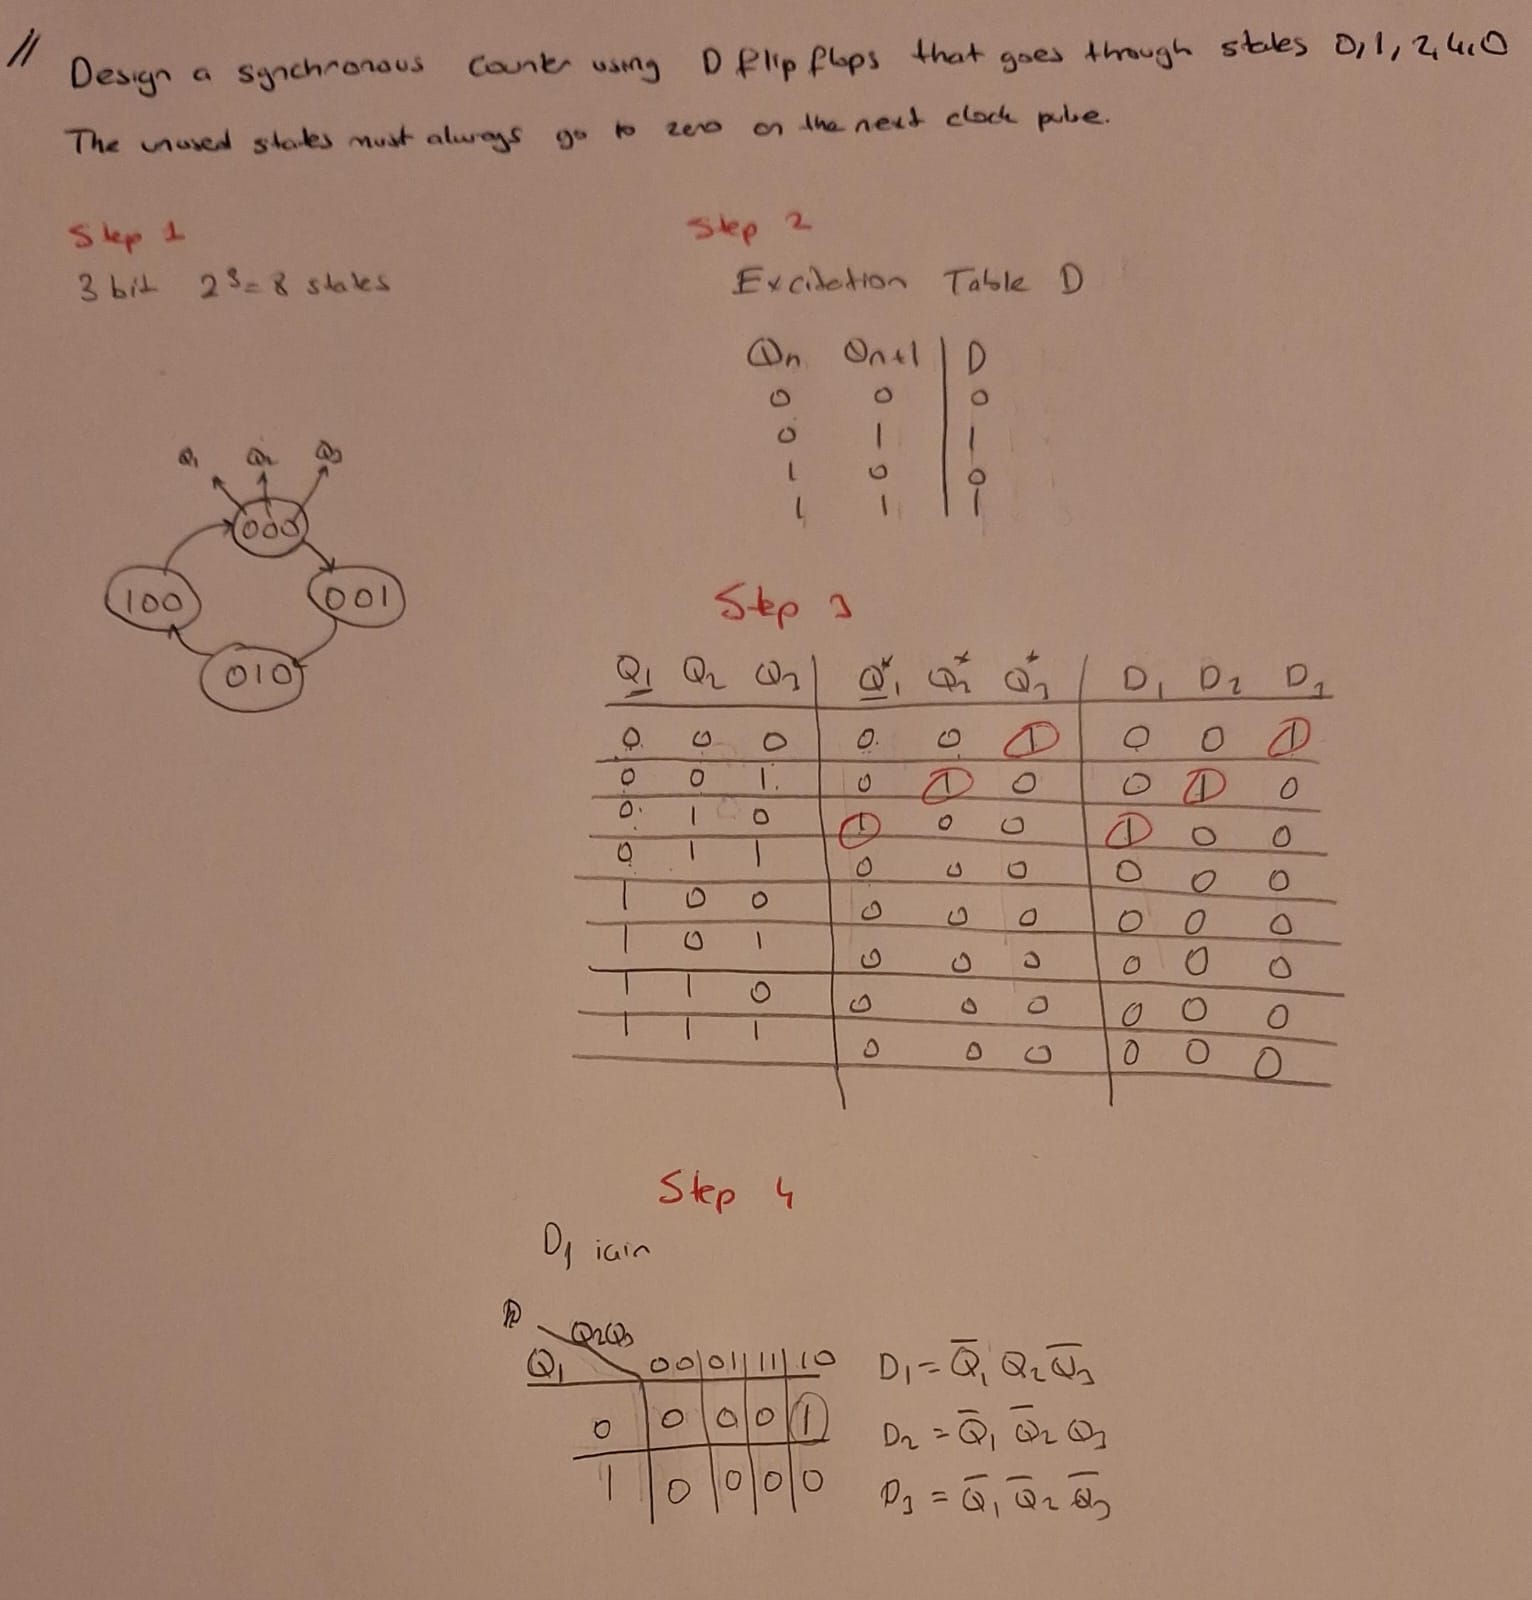 Design a synchronous Counter using D flip flops that goes through states 0,1,2,4,0
The unused states must always go to zero on the next clock pulse.
Step 1
3 bit 2³=8 states
Q₁ Q₂ Q₃
000
100
001
010
Step 2
Excitation Table D
Qn Qn+1 D
0 0 0
0 1 1
1 0 0
1 1 1
Step 3
Q₁ Q₂ Q₃ Q₁* Q₂* Q₃* D₁ D₂ D₃
0 0 0 0 0 1 0 0 1
0 0 1 0 1 0 0 1 0
0 1 0 1 0 0 1 0 0
0 1 1 0 0 0 0 0 0
1 0 0 0 0 0 0 0 0
1 0 1 0 0 0 0 0 0
1 1 0 0 0 0 0 0 0
1 1 1 0 0 0 0 0 0
Step 4
D₁ için
Q₂Q₃
Q₁ 00 01 11 10
0 0 0 0 1
1 0 0 0 0
D₁ = Q̅₁ Q₂ Q̅₃
D₂ = Q̅₁ Q̅₂ Q₃
D₃ = Q̅₁ Q̅₂ Q̅₃